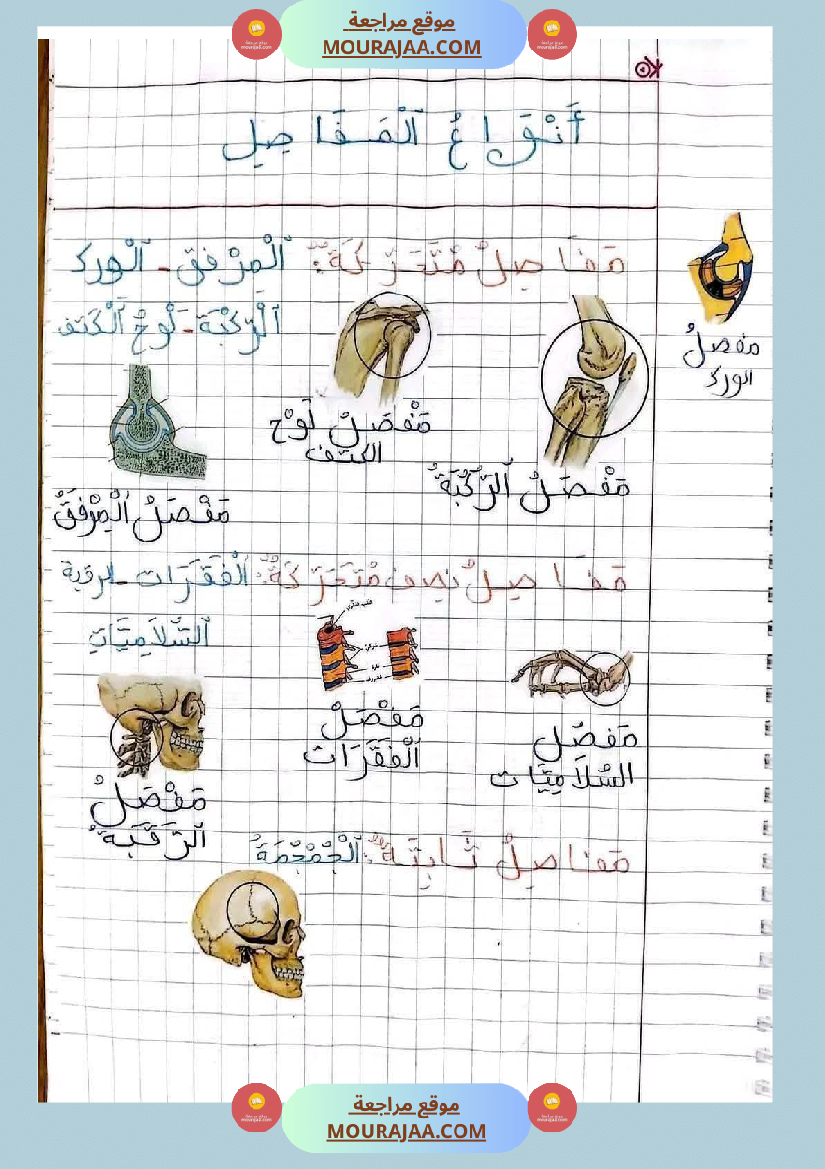 موقع مراجعة
MOURAJAA.COM
أَنْوَاعُ ٱلْمَفَاصِلِ
مَفَاصِلٌ مُتَحَرِّكَةٌ: ٱلْمِرْفَق - ٱلْوِرك
ٱلرُّكْبَة - لَوْحُ ٱلْكَتف
مفصلُ
الورك
مَفْصَلُ لَوْح
الكتف
مَفْصَلُ ٱلرُّكْبَةِ
مَفْصَلُ ٱلْمِرْفَقِ
مَفَاصِلٌ نِصف مُتَحَرِّكَةٌ: ٱلْفَقَرَات - الرقبة
ٱلسُّلَامِيَّات
مَفْصَلُ
ٱلْفَقَرَات
مَفصَل
السُّلَامِيَّات
مَفْصَلُ
ٱلرَّقَبَةِ
مَفاصِلٌ ثَابِتَةٌ: ٱلْجُمْجُمَةُ
موقع مراجعة
MOURAJAA.COM